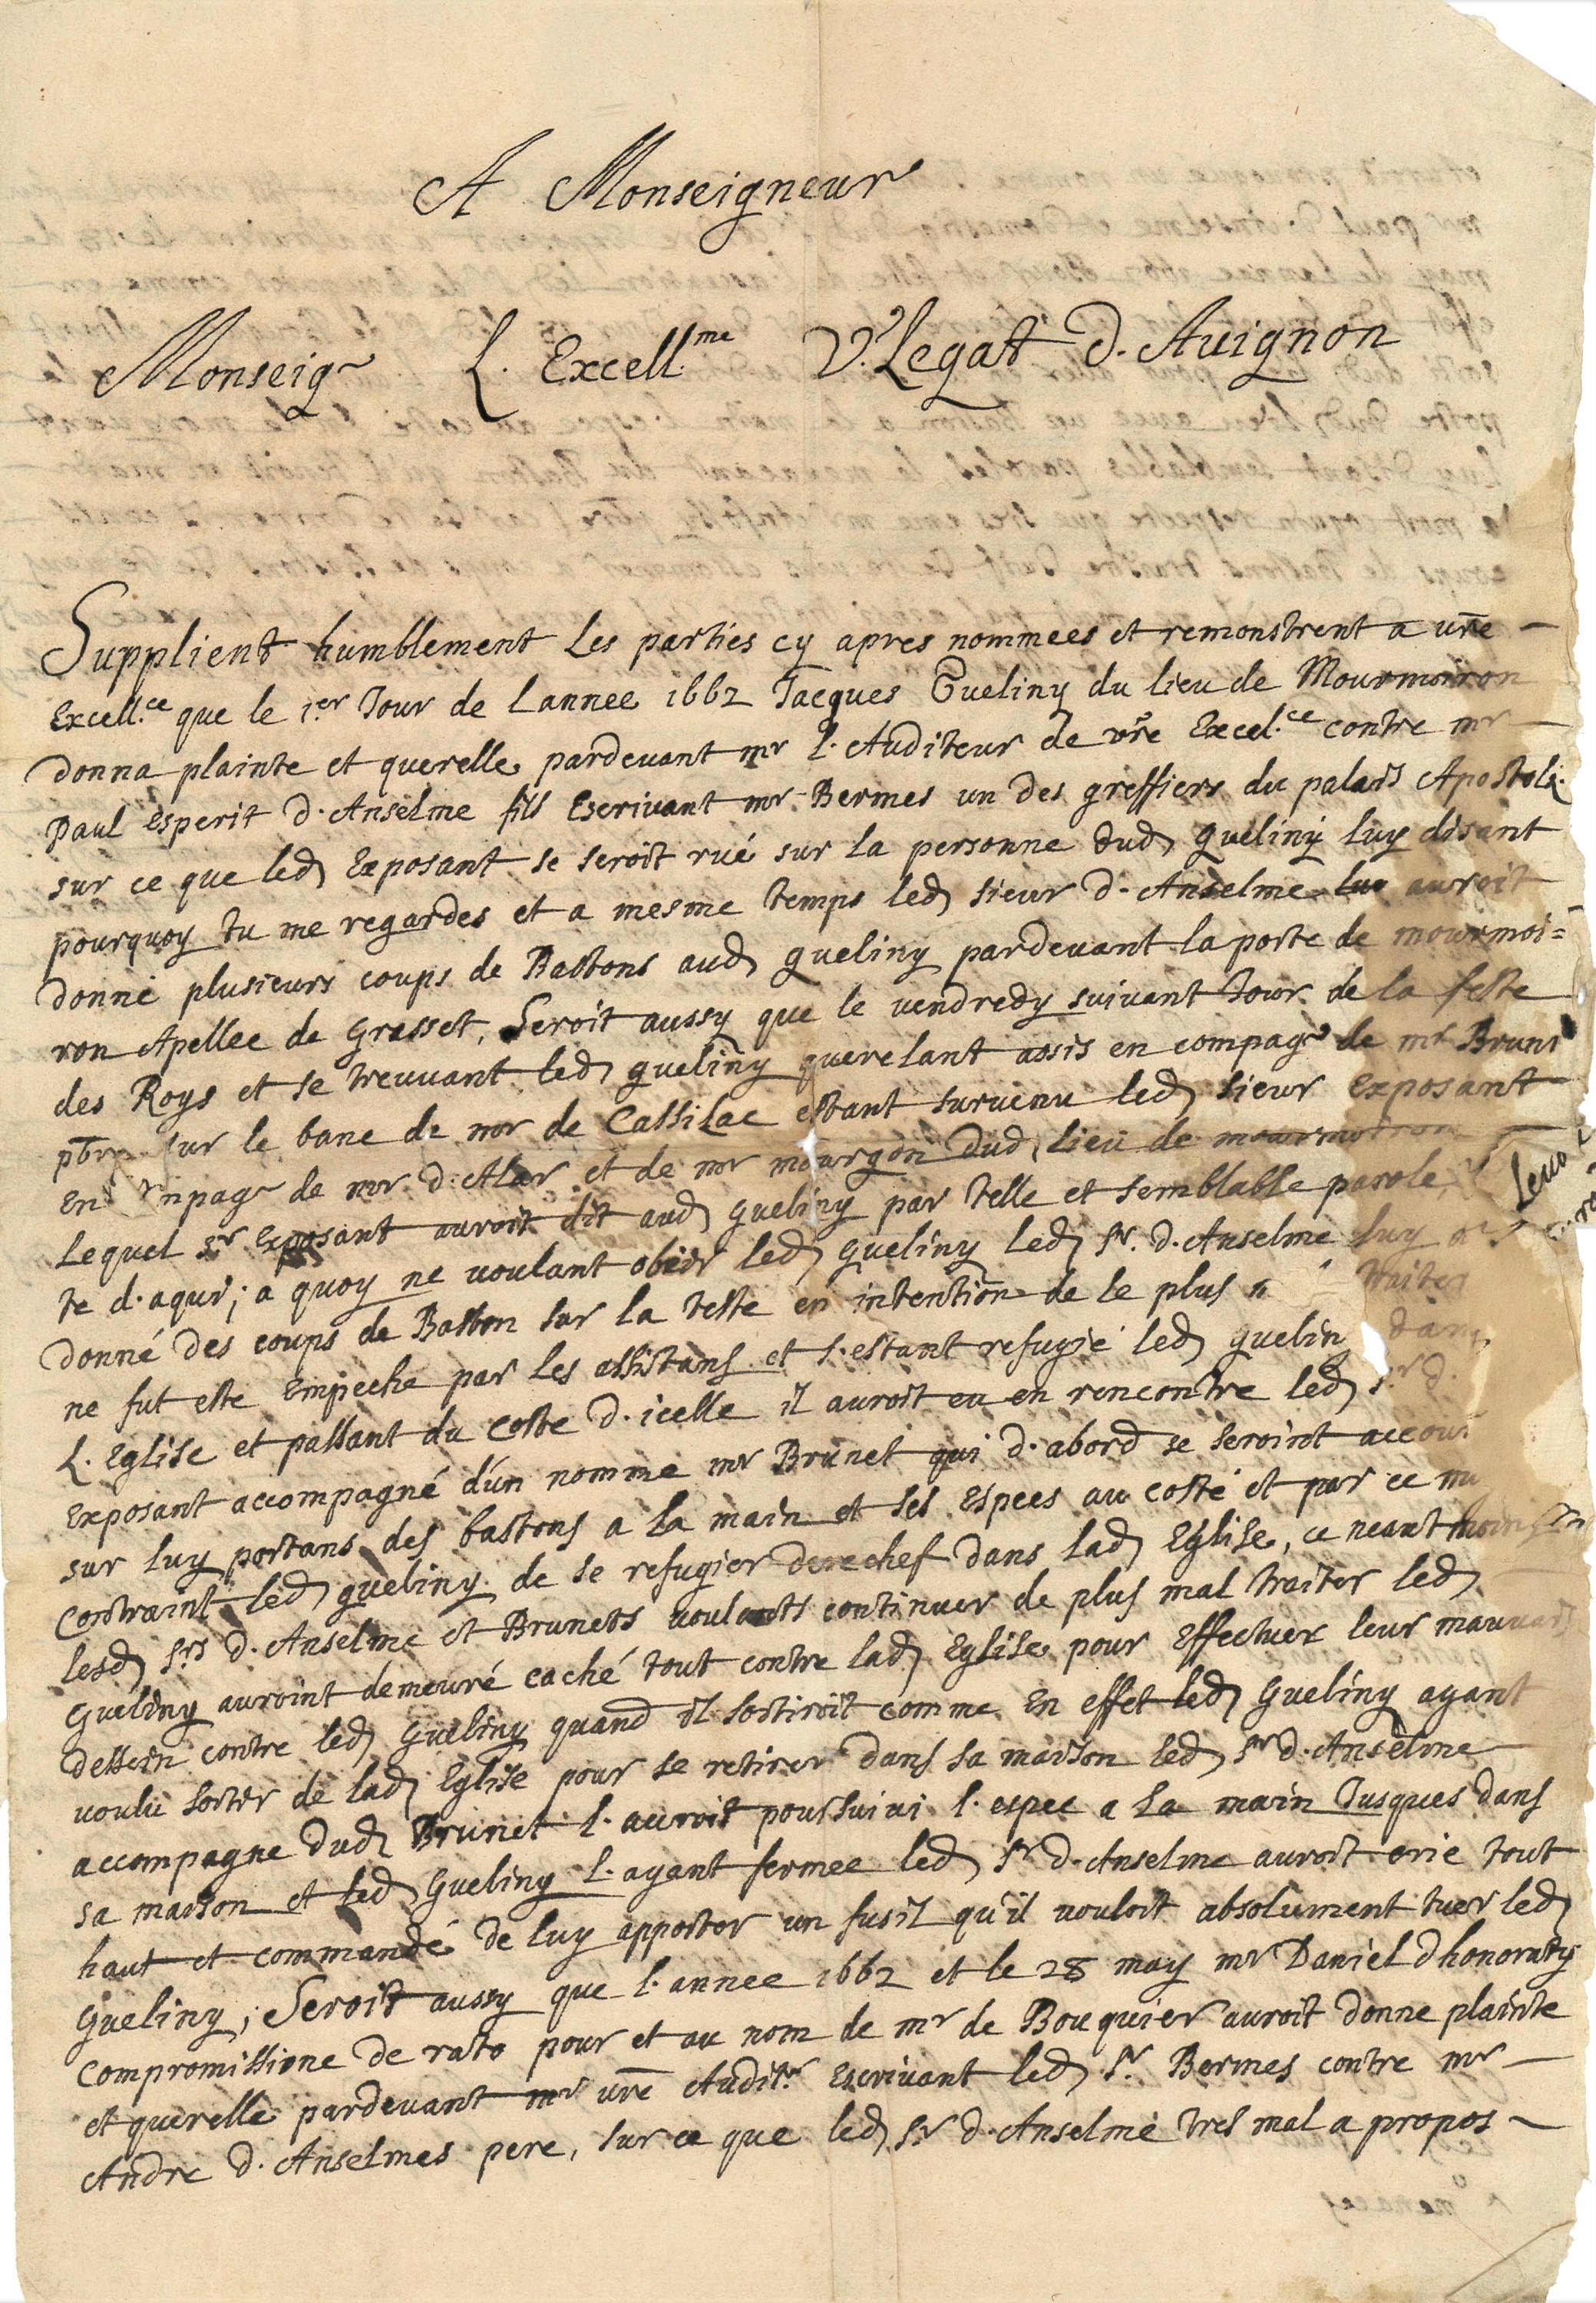 A Monseigneur
Monseigr L. Excell.me V. Legat d. Auignon
Supplient humblement Les parties cy apres nommees et remonstrent a vre
Excell.ce que le 1.er Jour de Lannee 1662 Jacques Gueliny du lieu de Mourmoiron
donna plainte et querelle pardeuant mr l. Auditeur de vre Excel.ce contre mr
Paul esperit d. Anselme fils Escriuant mr Bermes un des greffiers du palais Apostoli.
sur ce que led Exposant se seroit rué sur la personne dud gueliny luy disant
pourquoy tu me regardes et a mesme temps led sieur d. Anselme luy auroit
donné plusieurs coups de Bastons aud gueliny pardeuant la porte de mourmoi=
ron Apellee de grasset, Seroit aussy que le vendredy suiuant Jour de la feste
des Roys et se treuuant led gueliny querelant assis en compagr de mr Bruni
pbre sur le banc de mr de Cassilac estant suruenu led sieur Exposant
En mpagr de mr d. Alar et de mr mourgon dud lieu de mourmoiron
Lequel sr Exposant auroit dit aud gueliny par telle et semblable parole Leuo
te d. aqui; a quoy ne voulant obéir led gueliny led sr. d. Anselme luy
donné des coups de Baston sur la teste en intention de le plus traiter
ne fut este Empeche par les assistans et s. estant refugié led guelin dans
L. Eglise et passant du coste d. icelle il auroit eu en rencontre led sr d.
Exposant accompagné d'un nomme mr Brunet qui d. abord se seroint accou
sur luy portans des bastons a la main et les Espees au costé et par ce
Contraint led gueliny de se refugier derechef dans lad Eglise, ce neantmoins
lesd srs d. Anselme et Brunets voulants continuer de plus mal traiter led
Gueliny auroint demeuré caché tout contre lad Eglise pour Effectuer leur mauuais
dessein contre led Gueliny quand il sortiroit comme En effet led Gueliny ayant
voulu sortir de lad Eglise pour se retirer dans sa maison led sr d. Anselme
accompagne dud Brunet l. auroit poursuiui l. espee a La main Jusques dans
sa maison et led Gueliny L. ayant fermee led sr d. Anselme auroit crie tout
haut et commandé de luy apporter un fusil qu'il vouloit absolument tuer led
Gueliny; Seroit aussy que l. annee 1662 et le 28 may mr Daniel d honoraty
compromissione de rato pour et au nom de mr de Bouquier auroit donne plainte
et querelle pardeuant mr vre Auditr Escriuant led sr. Bermes contre mr
Andre d. Anselmes pere, sur ce que led sr d. Anselme tres mal a propos